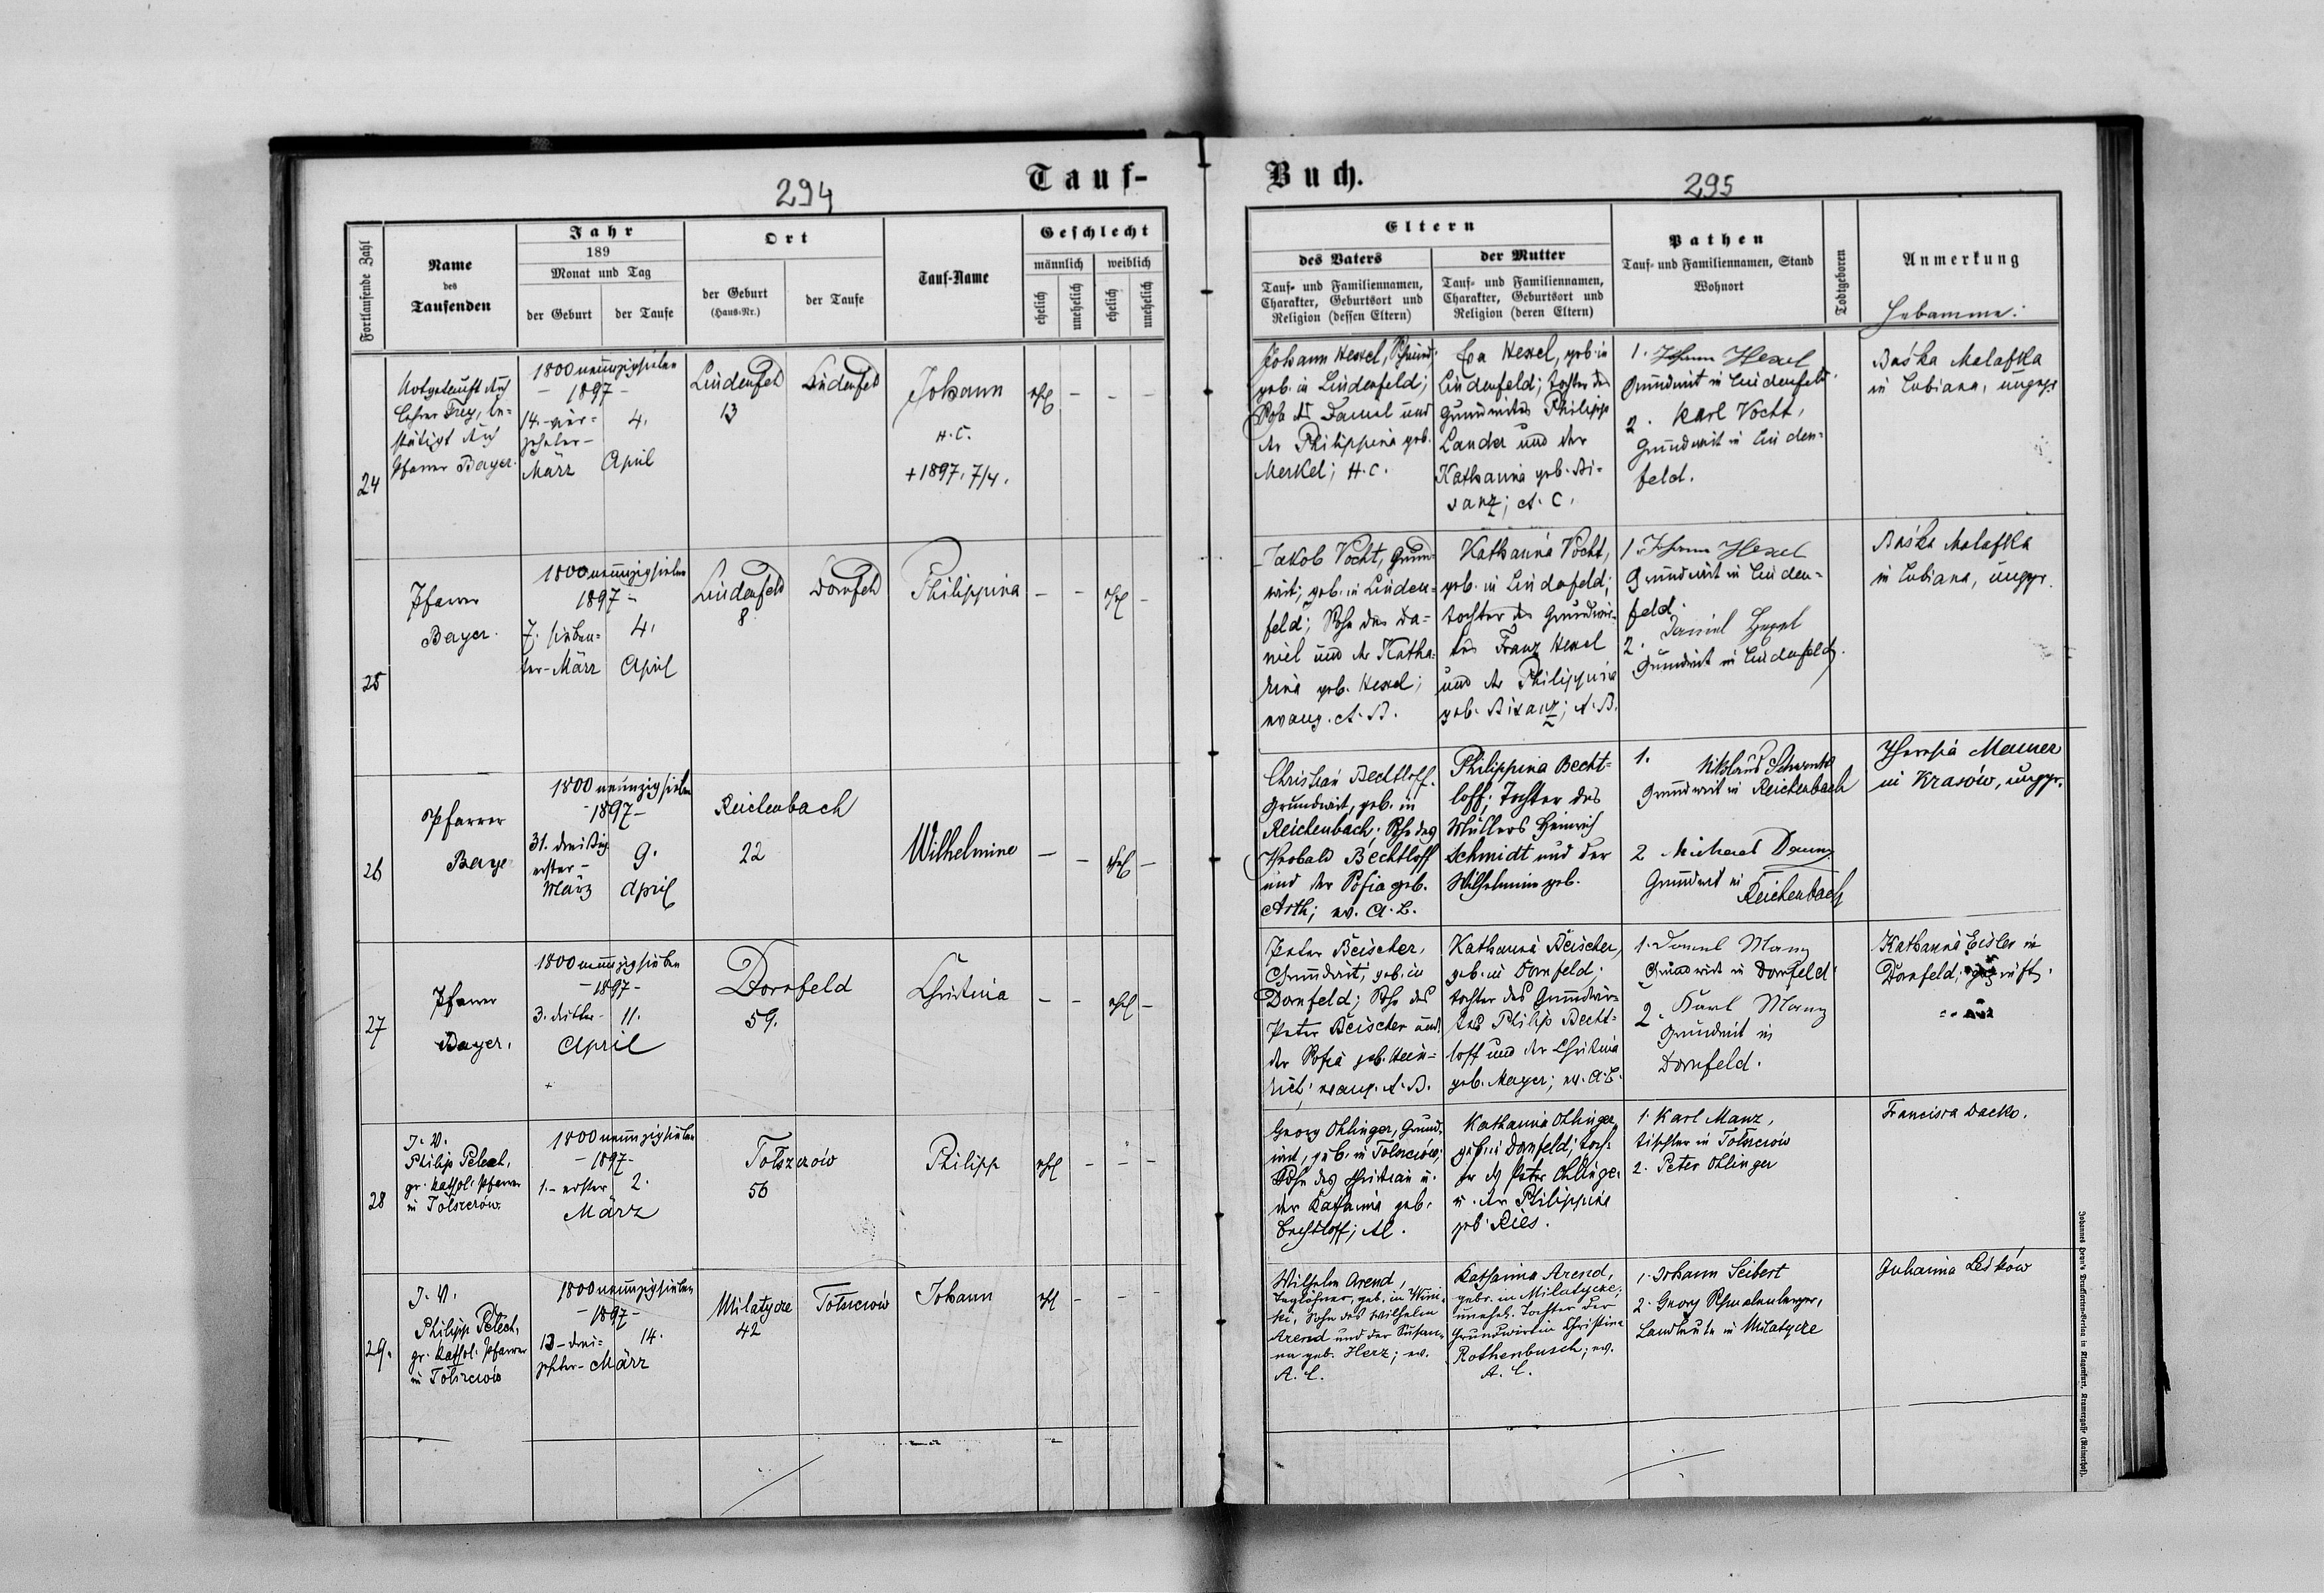 Tauf-
Buch.
294
295
Fortlaufende Zahl
Name
des
Taufenden
Jahr
189
Monat und Tag
der Geburt
der Taufe
Ort
der Geburt
(Haus-Nr.)
der Taufe
Tauf-Name
Geschlecht
männlich
weiblich
ehelich
unehelich
ehelich
unehelich
Eltern
des Vaters
Tauf- und Familiennamen,
Charakter, Geburtsort und
Religion (dessen Eltern)
der Mutter
Tauf- und Familiennamen,
Charakter, Geburtsort und
Religion (deren Eltern)
Pathen
Tauf- und Familiennamen, Stand
Wohnort
Todtgeboren
Anmerkung
Hebamme:
24
Notgetauft dch
Lehrer Frey, be-
stätigt dch
Pfarrer Bayer.
1800neunzigsieben
- 1897 -
14.-vier-
zehnter-
März
4.
April
Lindenfeld
13
Lindenfeld
Johann
H. C.
+ 1897. 7/4.
ehel
- - -
Johann Hexel,
geb. in Lindenfeld;
Sohn des Daniel und
der Philippina geb.
Merkel; H. C.
Eva Hexel, geb. in
Lindenfeld; Tochter des
Grundwirtes Philipp
Lander und der
Katharina geb. Bi-
sanz; A. C.
1. Johann Hexel
Grundwirt in Lindenfeld.
2. Karl Vocht,
Grundwirt in Linden-
feld.
Baśka Malafka
in Lubiana, ungepr.
25
Pfarrer
Bayer.
1800neunzigsieben
1897 -
7. sieben-
ter-März
4.
April
Lindenfeld
8
Dornfeld
Philippina
- - ehel -
Jakob Vocht, Grund-
wirt; geb. in Linden-
feld; Sohn des Da-
niel und der Katha-
rina geb. Hexel;
evang. A. B.
Katharina Vocht,
geb. in Lindenfeld;
Tochter des Grundwir-
tes Franz Hexel
und der Philippina
geb. Bisanz; A. B.
1 Johann Hexel
Grundwirt in Linden-
feld.
2. Daniel Hexel
Grundwirt in Lindenfeld.
Baśka Malafka
in Lubiana, ungepr.
26
Pfarrer
Baye
1800 neunzigsieben
- 1897 -
31. dreißig
erster -
März
9.
April
Reichenbach
22
Wilhelmine
- - ehel -
Christian Bechtloff.
Grundwirt, geb. in
Reichenbach; Sohn des
Theobald Bechtloff
und der Sofia geb.
Arth; ev. A. B.
Philippina Becht-
loff; Tochter des
Müllers Heinrich
Schmidt und der
Wilhelmine geb.
1. Nikolaus
Grundwirt in Reichenbach
2 Michael
Grundwirt in
Reichenbach
Theresia Maurer
in Krasów, ungepr.
27
Pfarrer
Bayer.
1800neunzigsieben
- 1897 -
3. dritter-
11.
April
Dornfeld
59.
Christina
- - ehel -
Peter Beischer,
Grundwirt, geb. in
Dornfeld; Sohn des
Peter Beischer und
der Sofia geb. Hein-
rich; evang. A. B.
Katharina Beischer,
geb. in Dornfeld;
Tochter des Grundwir-
tes Philip Becht-
loff und der Christina
geb. Mayer; ev. A. B.
1. Daniel Manz
Grundwirt in Dornfeld
2. Karl Manz
Grundwirt in
Dornfeld.
Katharina Eisler in
Dornfeld,
28
I. V.
Philip Pelech,
gr. kathol. Pfarrer
in Tołszczów.
1800neunzigsieben
- 1897 -
1.- erster
2.
März
Tołszczów
56
Philipp
ehel - - -
Georg Ohlinger, Grund-
wirt, geb. in Tołszczów;
Sohn des Christian u.
der Katharina geb.
Bechtloff; AC.
Katharina Ohlinger,
geb. in Dornfeld; Toch-
ter des Peter Ohlinger
u. der Philippina
geb. Ries.
1. Karl Manz,
Tischler in Tołszczów
2. Peter Ohlinger
Francisca Dacko.
29.
I. V.
Philipp Pelech,
gr. kathol. Pfarrer
in Tołszczów
1800neunzigsieben
- 1897 -
13 - drei-
zehnter - März
14.
Milatycze
42
Tołszczów
Johann
ehel - - -
Wilhelm Arend,
Taglöhner, geb. in Wini-
ki, Sohn des Wilhelm
Arend und der Susan-
na geb. Herz; ev.
A. C.
Katharina Arend,
gebr. in Milatycze,
unehel. Tochter der
Grundwirtin Christine
Rothenbusch; ev.
A. C.
1. Johann Seibert
2. Georg Schmalenberger,
Landleute in Milatycze
Juhanna Leśków